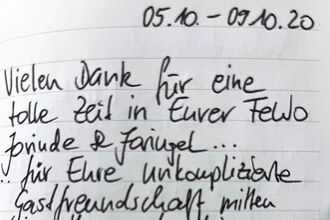 05.10. - 09.10.20
Vielen Dank für eine
tolle Zeit in Eurer FeWo
Jorinde & Joringel...
.. für Eure unkomplizierte
Gastfreundschaft mitten